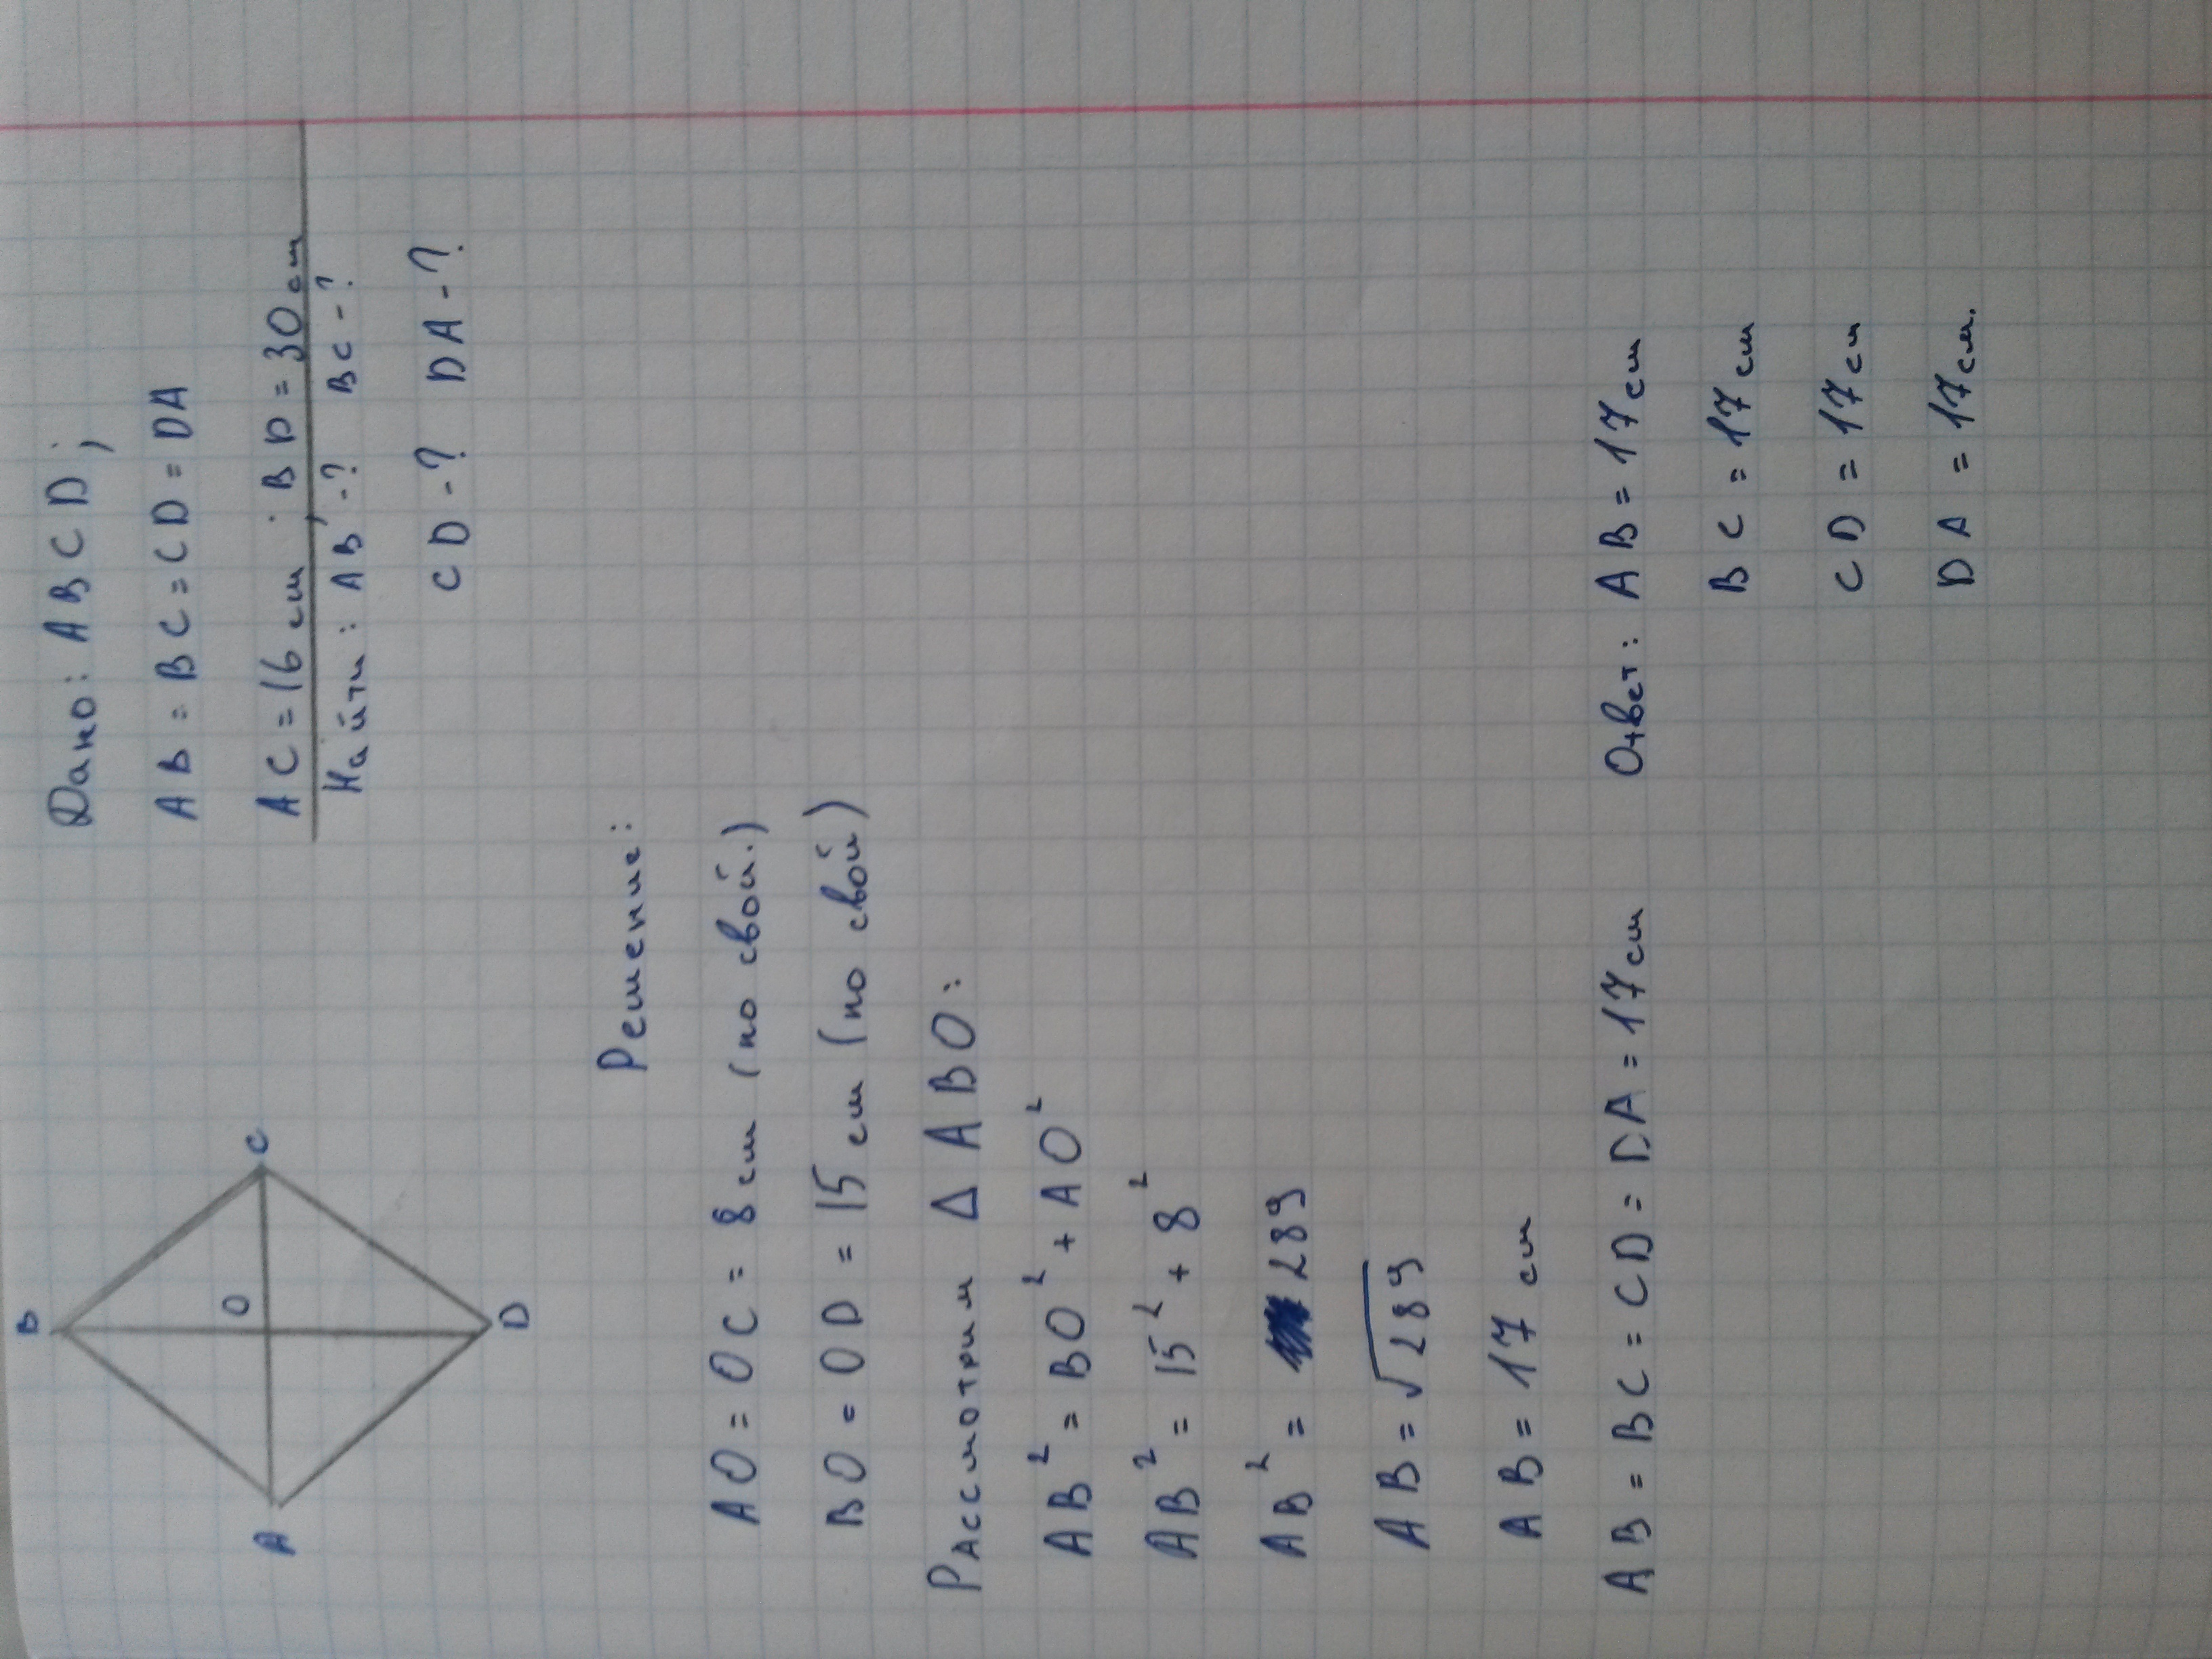 B
O
C
A
D
Дано: ABCD;
AB = BC = CD = DA
AC = 16 см; BD = 30 см
Найти: AB -? BC -?
CD -? DA -?
Решение:
AO = OC = 8 см (по свой.)
BO = OD = 15 см (по свой)
Рассмотрим △ ABO:
AB² = BO² + AO²
AB² = 15² + 8²
AB² = 289
AB = √289
AB = 17 см
AB = BC = CD = DA = 17 см
Ответ: AB = 17 см
BC = 17 см
CD = 17 см
DA = 17 см.